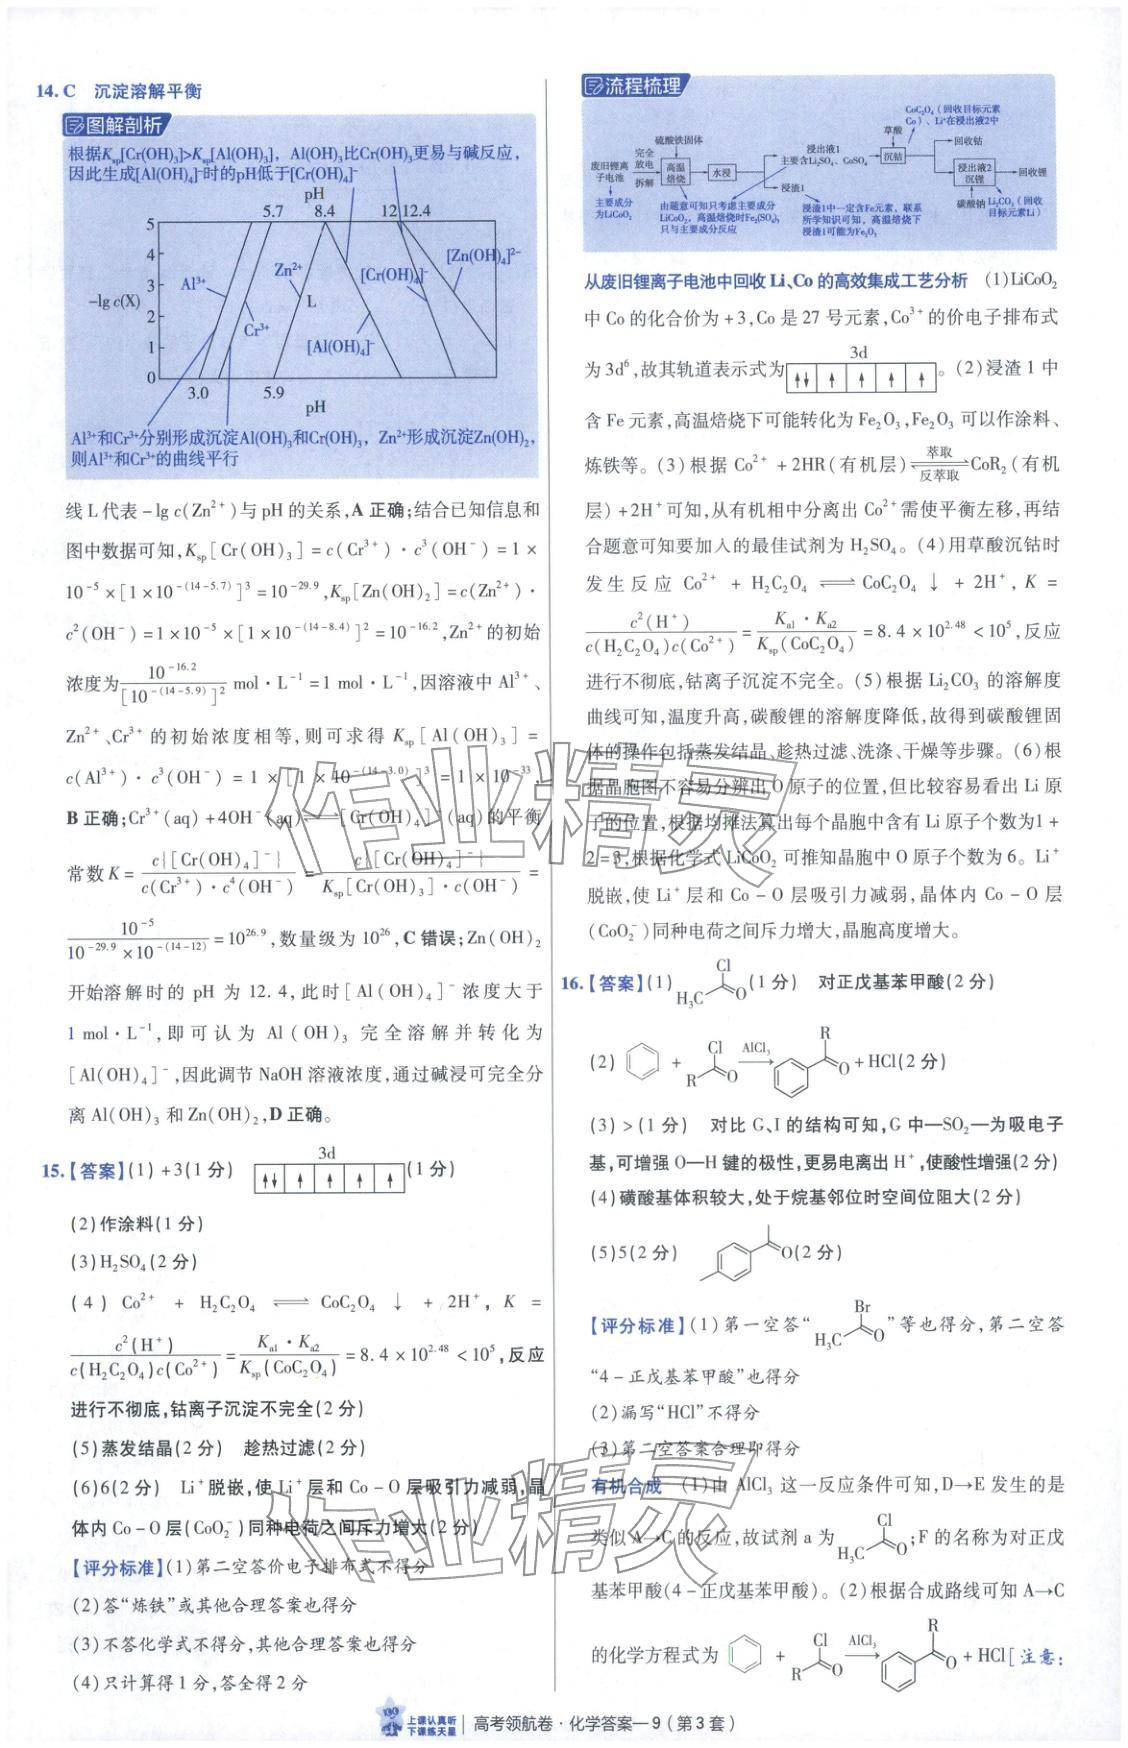 14. C　沉淀溶解平衡
图解剖析
根据Ksp[Cr(OH)3]>Ksp[Al(OH)3]，Al(OH)3比Cr(OH)3更易与碱反应，
因此生成[Al(OH)4]⁻时的pH低于[Cr(OH)4]⁻
pH
5.7 8.4 12 12.4
5
4
3
2
1
0
-lg c(X)
Al³⁺
Cr³⁺
Zn²⁺
L
[Cr(OH)4]⁻
[Zn(OH)4]²⁻
[Al(OH)4]⁻
3.0 5.9
pH
Al³⁺和Cr³⁺分别形成沉淀Al(OH)3和Cr(OH)3，Zn²⁺形成沉淀Zn(OH)2，
则Al³⁺和Cr³⁺的曲线平行
线 L 代表 -lg c(Zn²⁺)与 pH 的关系,A 正确;结合已知信息和
图中数据可知,Ksp[Cr(OH)3] = c(Cr³⁺)·c³(OH⁻) = 1 ×
10⁻⁵ × [1 × 10^-(14-5.7)]³ = 10^-29.9,Ksp[Zn(OH)2] = c(Zn²⁺)·
c²(OH⁻) = 1 × 10⁻⁵ × [1 × 10^-(14-8.4)]² = 10^-16.2,Zn²⁺的初始
浓度为 10^-16.2/[10^-(14-5.9)]² mol·L⁻¹ = 1 mol·L⁻¹,因溶液中 Al³⁺、
Zn²⁺、Cr³⁺ 的初始浓度相等,则可求得 Ksp[Al(OH)3] =
c(Al³⁺)·c³(OH⁻) = 1 × [1 × 10^-(14-3.0)]³ = 1 × 10⁻³³,
B 正确;Cr³⁺(aq) + 4OH⁻(aq)⇌[Cr(OH)4]⁻(aq)的平衡
常数 K = c{[Cr(OH)4]⁻}/c(Cr³⁺)·c⁴(OH⁻) = c{[Cr(OH)4]⁻}/Ksp[Cr(OH)3]·c(OH⁻) =
10⁻⁵/10^-29.9 × 10^-(14-12) = 10^26.9,数量级为 10²⁶,C 错误;Zn(OH)2
开始溶解时的 pH 为 12.4,此时[Al(OH)4]⁻浓度大于
1 mol·L⁻¹,即可认为 Al(OH)3 完全溶解并转化为
[Al(OH)4]⁻,因此调节 NaOH 溶液浓度,通过碱浸可完全分
离 Al(OH)3 和 Zn(OH)2,D 正确。
15.【答案】(1) +3(1 分)　3d ↑↓ ↑ ↑ ↑ ↑ (1 分)
(2)作涂料(1 分)
(3)H2SO4(2 分)
(4) Co²⁺ + H2C2O4 ⇌ CoC2O4↓ + 2H⁺, K =
c²(H⁺)/c(H2C2O4)c(Co²⁺) = Ka1·Ka2/Ksp(CoC2O4) = 8.4 × 10^2.48 < 10⁵,反应
进行不彻底,钴离子沉淀不完全(2 分)
(5)蒸发结晶(2 分)　趁热过滤(2 分)
(6)6(2 分)　Li⁺脱嵌,使 Li⁺层和 Co-O 层吸引力减弱,晶
体内 Co-O 层(CoO2⁻)同种电荷之间斥力增大(2 分)
【评分标准】(1)第二空答价电子排布式不得分
(2)答“炼铁”或其他合理答案也得分
(3)不答化学式不得分,其他合理答案也得分
(4)只计算得 1 分,答全得 2 分
流程梳理
CoC2O4（回收目标元素
Co）、Li⁺在浸出液2中
硫酸铁固体
草酸
废旧锂离子电池
完全放电
拆解
高温焙烧
水浸
浸出液1
主要含Li2SO4、CoSO4
沉钴
回收钴
浸出液2
沉锂
回收锂
浸渣1
碳酸钠
Li2CO3（回收目标元素Li）
主要成分为LiCoO2
由题意可知只考虑主要成分
LiCoO2，高温焙烧时Fe2(SO4)3
只与主要成分反应
浸渣1中一定含Fe元素，联系
所学知识可知，高温焙烧下
浸渣1可能为Fe2O3
从废旧锂离子电池中回收 Li、Co 的高效集成工艺分析　(1)LiCoO2
中 Co 的化合价为 +3,Co 是 27 号元素,Co³⁺的价电子排布式
为 3d⁶,故其轨道表示式为 3d ↑↓ ↑ ↑ ↑ ↑ 。(2)浸渣 1 中
含 Fe 元素,高温焙烧下可能转化为 Fe2O3,Fe2O3 可以作涂料、
炼铁等。(3)根据 Co²⁺ + 2HR(有机层) 萃取⇌反萃取 CoR2(有机
层) + 2H⁺可知,从有机相中分离出 Co²⁺需使平衡左移,再结
合题意可知要加入的最佳试剂为 H2SO4。(4)用草酸沉钴时
发生反应 Co²⁺ + H2C2O4 ⇌ CoC2O4↓ + 2H⁺, K =
c²(H⁺)/c(H2C2O4)c(Co²⁺) = Ka1·Ka2/Ksp(CoC2O4) = 8.4 × 10^2.48 < 10⁵,反应
进行不彻底,钴离子沉淀不完全。(5)根据 Li2CO3 的溶解度
曲线可知,温度升高,碳酸锂的溶解度降低,故得到碳酸锂固
体的操作包括蒸发结晶、趁热过滤、洗涤、干燥等步骤。(6)根
据晶胞图不容易分辨出 O 原子的位置,但比较容易看出 Li 原
子的位置,根据均摊法算出每个晶胞中含有 Li 原子个数为 1 +
2 = 3,根据化学式 LiCoO2 可推知晶胞中 O 原子个数为 6。Li⁺
脱嵌,使 Li⁺层和 Co-O 层吸引力减弱,晶体内 Co-O 层
(CoO2⁻)同种电荷之间斥力增大,晶胞高度增大。
16.【答案】(1) H3C Cl O (1 分)　对正戊基苯甲酸(2 分)
(2) + R Cl O AlCl3 → R O + HCl(2 分)
(3) >(1 分)　对比 G、I 的结构可知,G 中—SO2—为吸电子
基,可增强 O—H 键的极性,更易电离出 H⁺,使酸性增强(2 分)
(4)磺酸基体积较大,处于烷基邻位时空间位阻大(2 分)
(5)5(2 分)　O(2 分)
【评分标准】(1)第一空答“H3C Br O”等也得分,第二空答
“4-正戊基苯甲酸”也得分
(2)漏写“HCl”不得分
(3)第二空答案合理即得分
有机合成　(1)由 AlCl3 这一反应条件可知,D→E 发生的是
类似 A→C 的反应,故试剂 a 为 H3C Cl O ;F 的名称为对正戊
基苯甲酸(4-正戊基苯甲酸)。(2)根据合成路线可知 A→C
的化学方程式为 + R Cl O AlCl3 → R O + HCl[注意:
作业精灵
作业精灵
上课认真听
下课练天星
高考领航卷·化学答案—9(第 3 套)